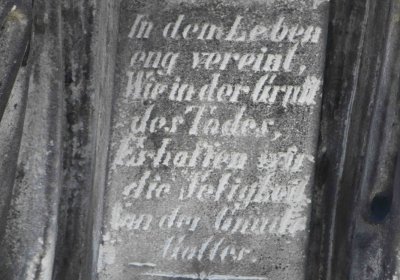 In dem Leben
eng vereint,
Wie in der Gruft
des Todes,
Erhalten wir
die Seligkeit
von der Gnade
Gottes.